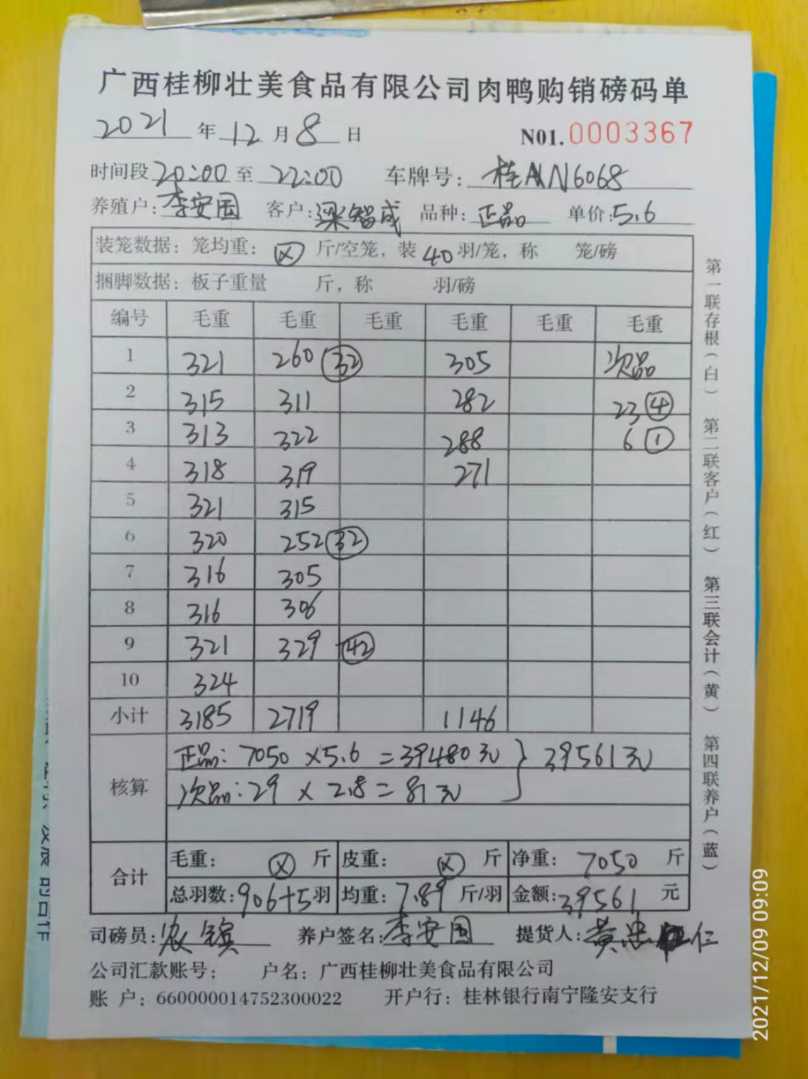 广西桂柳壮美食品有限公司肉鸭购销磅码单
2021 年 12 月 8 日 N01.0003367
时间段 20:00 至 22:00 车牌号: 桂AN6068
养殖户: 李安国 客户: 梁智成 品种: 正品 单价: 5.6
装笼数据: 笼均重: ⊗ 斤/空笼, 装 40 羽/笼, 称 笼/磅
捆脚数据: 板子重量 斤, 称 羽/磅
编号 毛重 毛重 毛重 毛重 毛重 毛重
1 321 260 ㉜ 305 次品
2 315 311 282 23 ④
3 313 322 288 6 ①
4 318 319 271
5 321 315
6 320 252 ㉜
7 316 305
8 316 306
9 321 329 ㊷
10 324
小计 3185 2719 1146
核算 正品: 7050 × 5.6 = 39480元 } 39561元
次品: 29 × 2.8 = 81元
合计 毛重: ⊗ 斤 皮重: ⊗ 斤 净重: 7050 斤
总羽数: 906+5 羽 均重: 7.89 斤/羽 金额: 39561 元
司磅员: 农 养户签名: 李安国 提货人: 黄忠仁
公司汇款账号: 户名: 广西桂柳壮美食品有限公司
账 户: 660000014752300022 开户行: 桂林银行南宁隆安支行
第一联存根(白) 第二联客户(红) 第三联会计(黄) 第四联养户(蓝)
发展的合作
2021/12/09 09:09